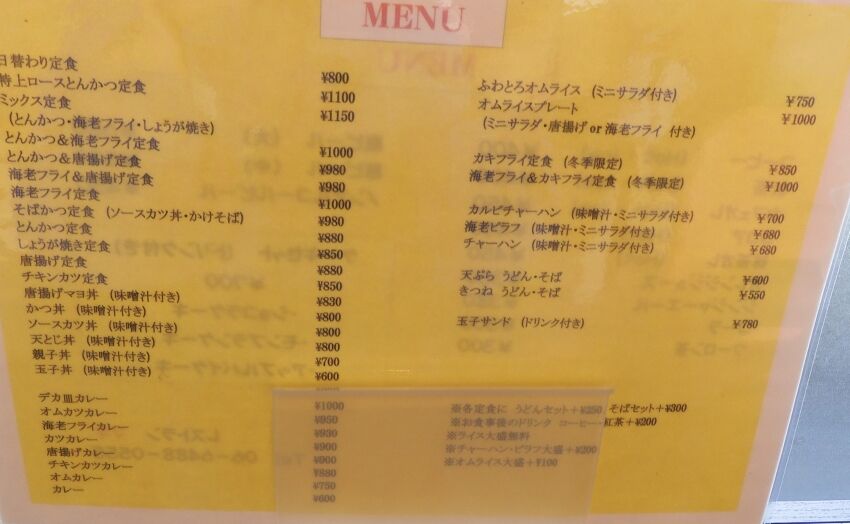 MENU
日替わり定食 ¥800
特上ロースとんかつ定食 ¥1100
ミックス定食 ¥1150
(とんかつ・海老フライ・しょうが焼き)
とんかつ&海老フライ定食 ¥1000
とんかつ&唐揚げ定食 ¥980
海老フライ&唐揚げ定食 ¥980
海老フライ定食 ¥1000
そばかつ定食 (ソースカツ丼・かけそば) ¥980
とんかつ定食 ¥880
しょうが焼き定食 ¥850
唐揚げ定食 ¥880
チキンカツ定食 ¥850
唐揚げマヨ丼 (味噌汁付き) ¥830
かつ丼 (味噌汁付き) ¥800
ソースカツ丼 (味噌汁付き) ¥800
天とじ丼 (味噌汁付き) ¥800
親子丼 (味噌汁付き) ¥700
玉子丼 (味噌汁付き) ¥600
デカ皿カレー ¥1000
オムカツカレー ¥950
海老フライカレー ¥930
カツカレー ¥900
唐揚げカレー ¥900
チキンカツカレー ¥880
オムカレー ¥750
カレー ¥600
ふわとろオムライス (ミニサラダ付き) ¥750
オムライスプレート ¥1000
(ミニサラダ・唐揚げ or 海老フライ 付き)
カキフライ定食 (冬季限定) ¥850
海老フライ&カキフライ定食 (冬季限定) ¥1000
カルビチャーハン (味噌汁・ミニサラダ付き) ¥700
海老ピラフ (味噌汁・ミニサラダ付き) ¥680
チャーハン (味噌汁・ミニサラダ付き) ¥680
天ぷら うどん・そば ¥600
きつね うどん・そば ¥550
玉子サンド (ドリンク付き) ¥780
※各定食に うどんセット+¥250 そばセット+¥300
※お食事後のドリンク コーヒー・紅茶+¥200
※ライス大盛無料
※チャーハン・ピラフ大盛+¥200
※オムライス大盛+¥100